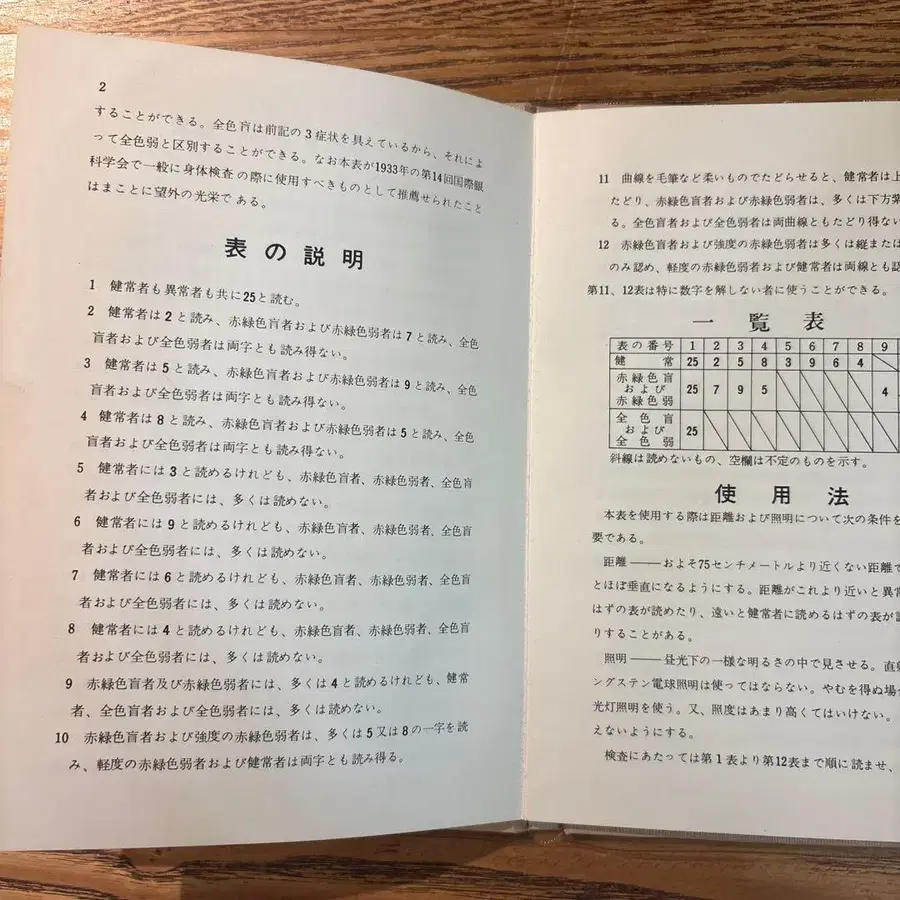 2
することができる。全色盲は前記の3症状を具えているから、それによ
って全色弱と区別することができる。なお本表が1933年の第14回国際眼
科学会で一般に身体検査の際に使用すべきものとして推薦せられたこと
はまことに望外の光栄である。
表の説明
1 健常者も異常者も共に25と読む。
2 健常者は2と読み、赤緑色盲者および赤緑色弱者は7と読み、全色
盲者および全色弱者は両字とも読み得ない。
3 健常者は5と読み、赤緑色盲者および赤緑色弱者は9と読み、全色
盲者および全色弱者は両字とも読み得ない。
4 健常者は8と読み、赤緑色盲者および赤緑色弱者は5と読み、全色
盲者および全色弱者は両字とも読み得ない。
5 健常者には3と読めるけれども、赤緑色盲者、赤緑色弱者、全色盲
者および全色弱者には、多くは読めない。
6 健常者には9と読めるけれども、赤緑色盲者、赤緑色弱者、全色盲
者および全色弱者には、多くは読めない。
7 健常者には6と読めるけれども、赤緑色盲者、赤緑色弱者、全色盲
者および全色弱者には、多くは読めない。
8 健常者には4と読めるけれども、赤緑色盲者、赤緑色弱者、全色盲
者および全色弱者には、多くは読めない。
9 赤緑色盲者及び赤緑色弱者には、多くは4と読めるけれども、健常
者、全色盲者および全色弱者には、多くは読めない。
10 赤緑色盲者および強度の赤緑色弱者は、多くは5又は8の一字を読
み、軽度の赤緑色弱者および健常者は両字とも読み得る。
11 曲線を毛筆など柔いものでたどらせると、健常者は上
たどり、赤緑色盲者および赤緑色弱者は、多くは下方紫
る。全色盲者および全色弱者は両曲線ともたどり得ない
12 赤緑色盲者および強度の赤緑色弱者は多くは縦または
のみ認め、軽度の赤緑色弱者および健常者は両線とも認
第11、12表は特に数字を解しない者に使うことができる。
一覧表
表の番号 1 2 3 4 5 6 7 8 9
健常 25 2 5 8 3 9 6 4
赤緑色盲
および 25 7 9 5 4
赤緑色弱
全色盲
および 25
全色弱
斜線は読めないもの、空欄は不定のものを示す。
使用法
本表を使用する際は距離および照明について次の条件を
要である。
距離――およそ75センチメートルより近くない距離で
とほぼ垂直になるようにする。距離がこれより近いと異常
はずの表が読めたり、遠いと健常者に読めるはずの表が読
りすることがある。
照明――昼光下の一様な明るさの中で見させる。直射
ングステン電球照明は使ってはならない。やむを得ぬ場合
光灯照明を使う。又、照度はあまり高くてはいけない。
えないようにする。
検査にあたっては第1表より第12表まで順に読ませ、